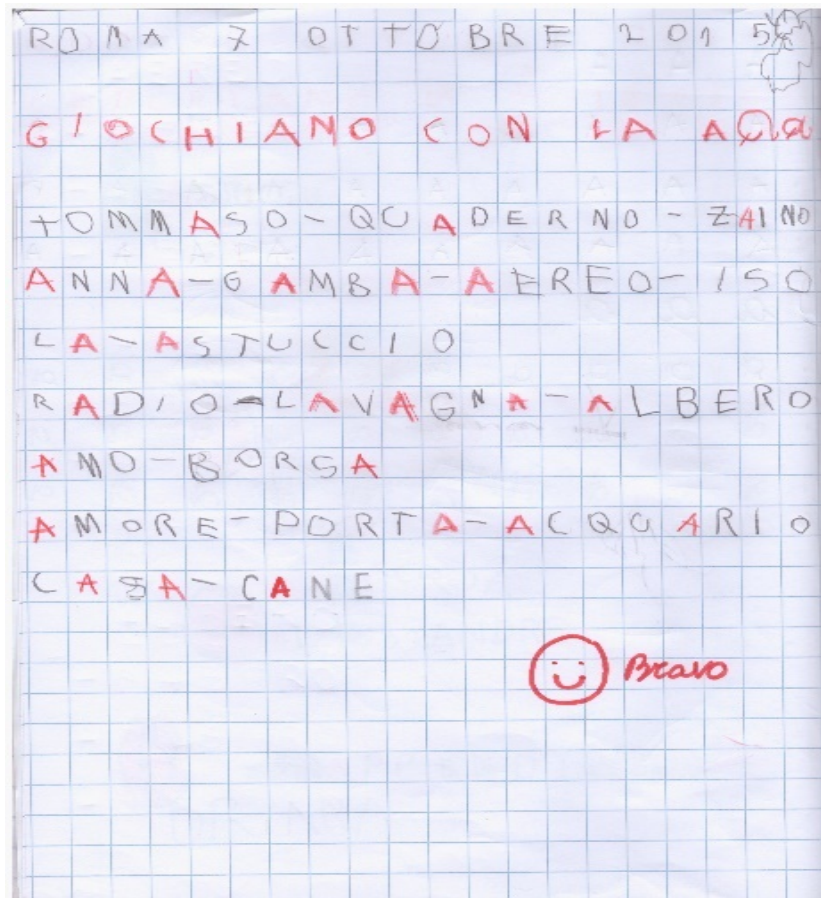 ROMA 7 OTTOBRE 2015
GIOCHIANO CON LA A a a
TOMMASO-QUADERNO-ZAINO
ANNA-GAMBA-AEREO-ISO
LA-ASTUCCIO
RADIO-LAVAGNA-ALBERO
AMO-BORSA
AMORE-PORTA-ACQUARIO
CASA-CANE
Bravo